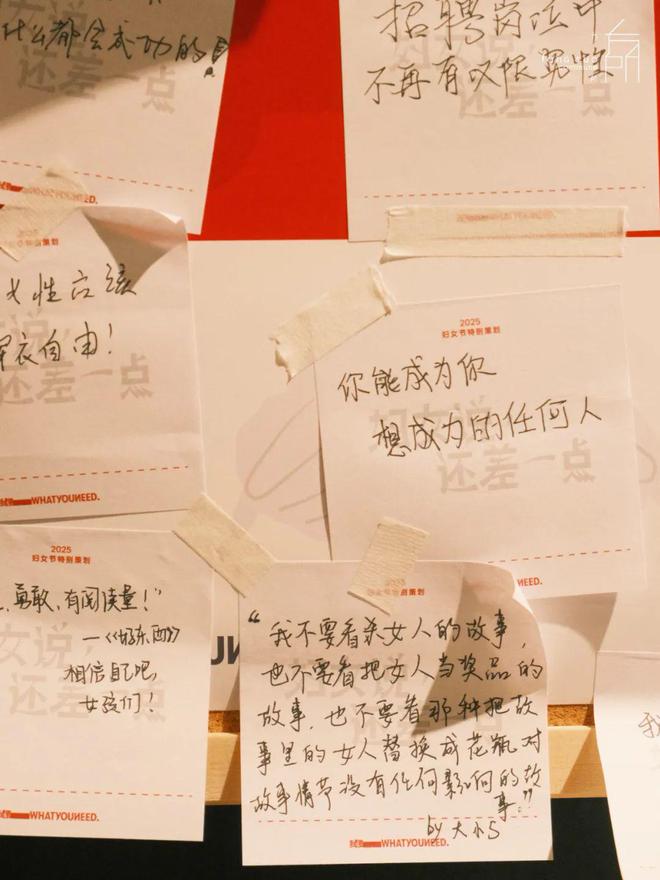 什么都会成功的!
还差一点
WHATYOUNEED.
招聘岗位中
不再有权限冤性
还差一点
妇女节特别策划
女性应该
穿衣自由!
还差一点
WHATYOUNEED.
2025
妇女节特别策划
你能成为你
想成为的任何人
妇女说,
还差一点
NEED.
2025
妇女节特别策划
勇敢、有阅读量!”
—《好东西》
相信自己吧,
女孩们!
WHATYOUNEED.
2025
妇女节特别策划
“我不要看杀女人的故事,
也不要看把女人当奖品的
故事,也不要看那种把故
事里的女人替换成花瓶对
故事情节没有任何影响的故
事。”
by 大小S
WHATYOUNEED.
我